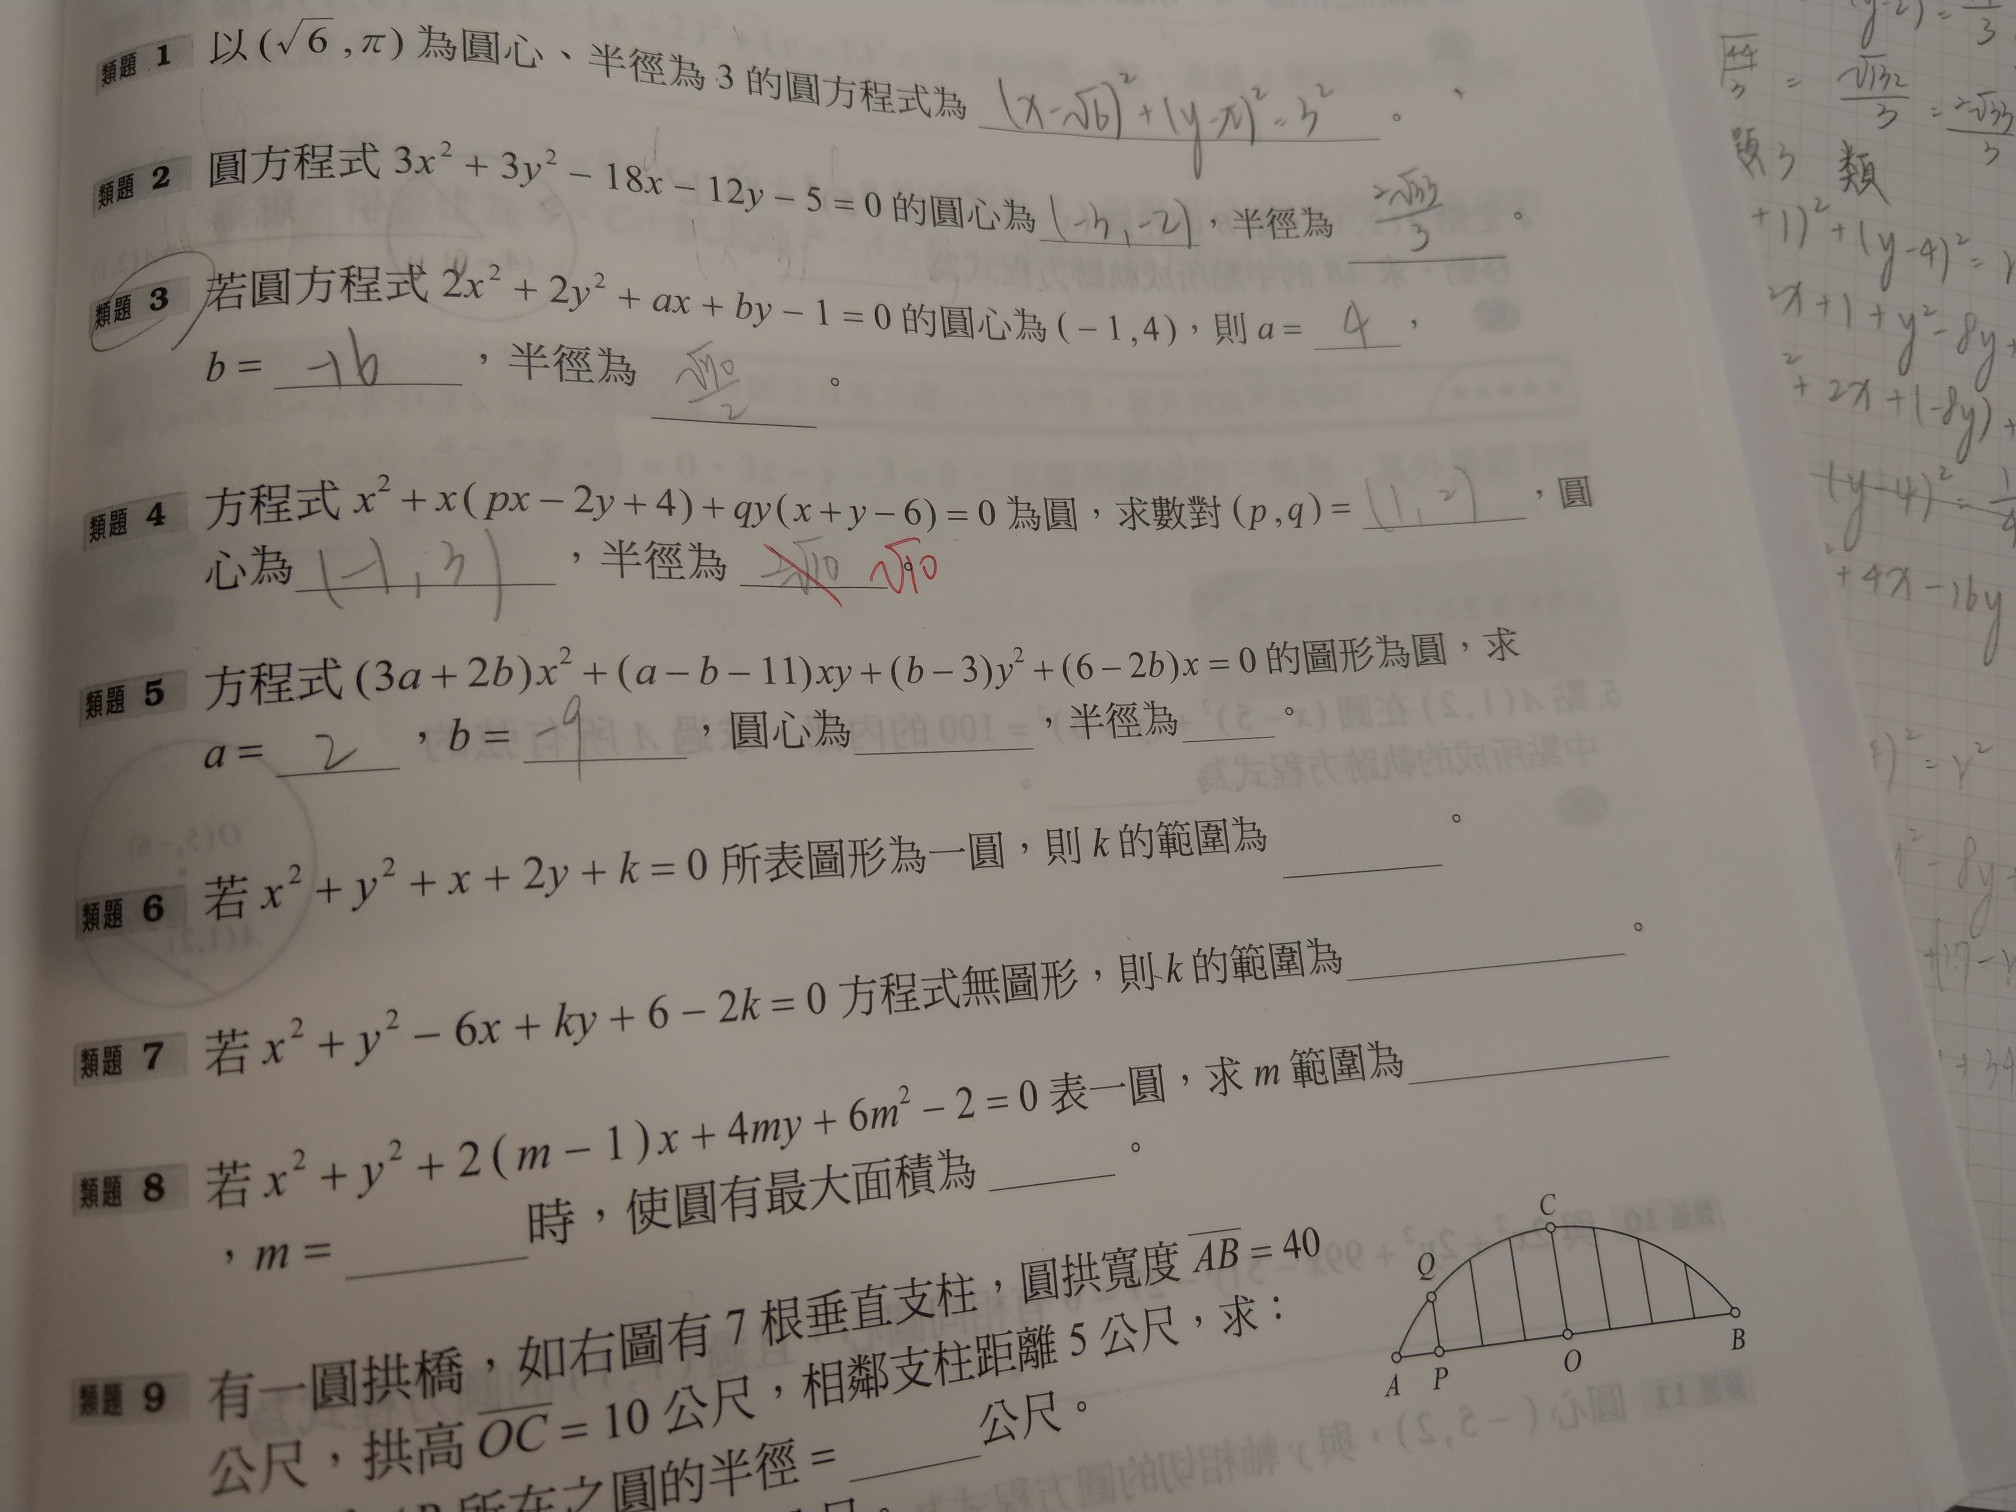 類題 1 以(√6,π)為圓心、半徑為3的圓方程式為 (x-√6)²+(y-π)²=3² 。
類題 2 圓方程式 3x²+3y²-18x-12y-5=0 的圓心為 (-3,-2) ,半徑為 2√33/3 。
類題 3 若圓方程式 2x²+2y²+ax+by-1=0 的圓心為(-1,4),則 a= 4 ,
b= -16 ,半徑為 √70/2 。
類題 4 方程式 x²+x(px-2y+4)+qy(x+y-6)=0 為圓,求數對(p,q)= (1,2) ,圓
心為 (-1,3) ,半徑為 2√10 √10 。
類題 5 方程式(3a+2b)x²+(a-b-11)xy+(b-3)y²+(6-2b)x=0 的圖形為圓,求
a= 2 ,b= -9 ,圓心為 ,半徑為 。
類題 6 若 x²+y²+x+2y+k=0 所表圖形為一圓,則 k 的範圍為 。
類題 7 若 x²+y²-6x+ky+6-2k=0 方程式無圖形,則 k 的範圍為 。
類題 8 若 x²+y²+2(m-1)x+4my+6m²-2=0 表一圓,求 m 範圍為
,m= 時,使圓有最大面積為 。
類題 9 有一圓拱橋,如右圖有7根垂直支柱,圓拱寬度 AB=40
公尺,拱高 OC=10 公尺,相鄰支柱距離5公尺,求:
所在之圓的半徑= 公尺。
C
Q
A P O B
√44/3 = √132/3 = 2√33/3
題3 類
+1)²+(y-4)²=
2x+1+y²-8y+
+2x+(-8y)+
(y-4)²=
+4x-16y
)²=r²
-8y+
+34